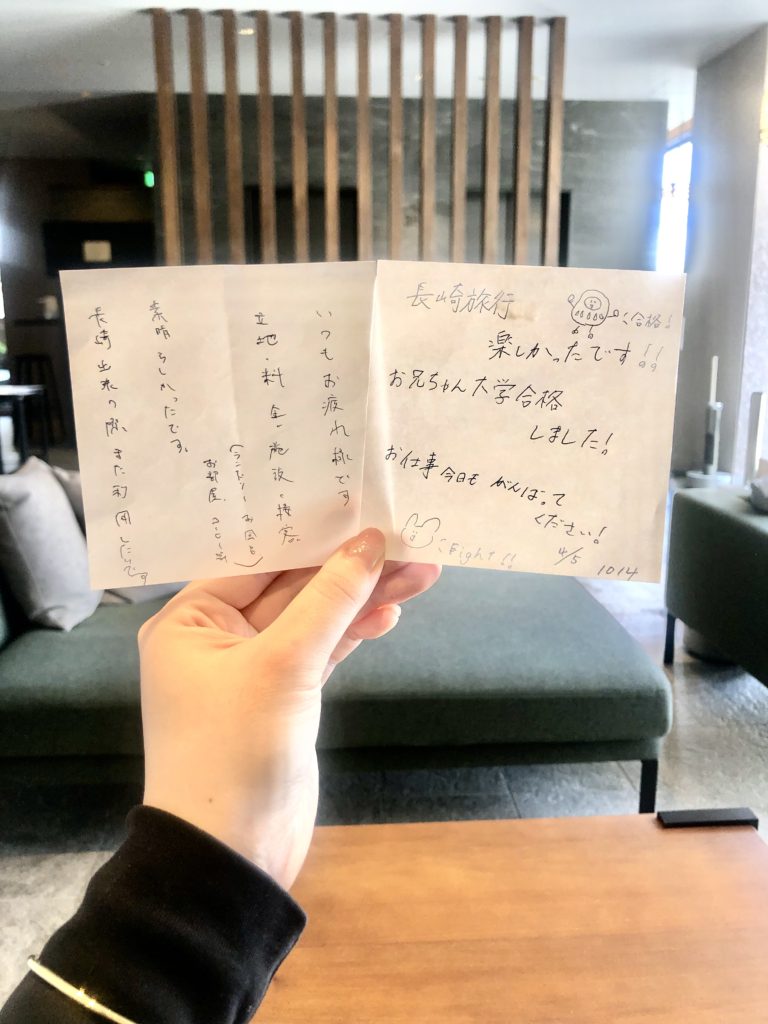 長崎旅行
合格!
楽しかったです!!
お兄ちゃん大学合格
しました!
お仕事今日も がんばって
ください!
Fight!!
4/5 1014
いつもお疲れ様です
立地・料金・施設・接客。
(ランドリー
お部屋、
素晴らしかったです。
長崎出来の際、また利用したいです